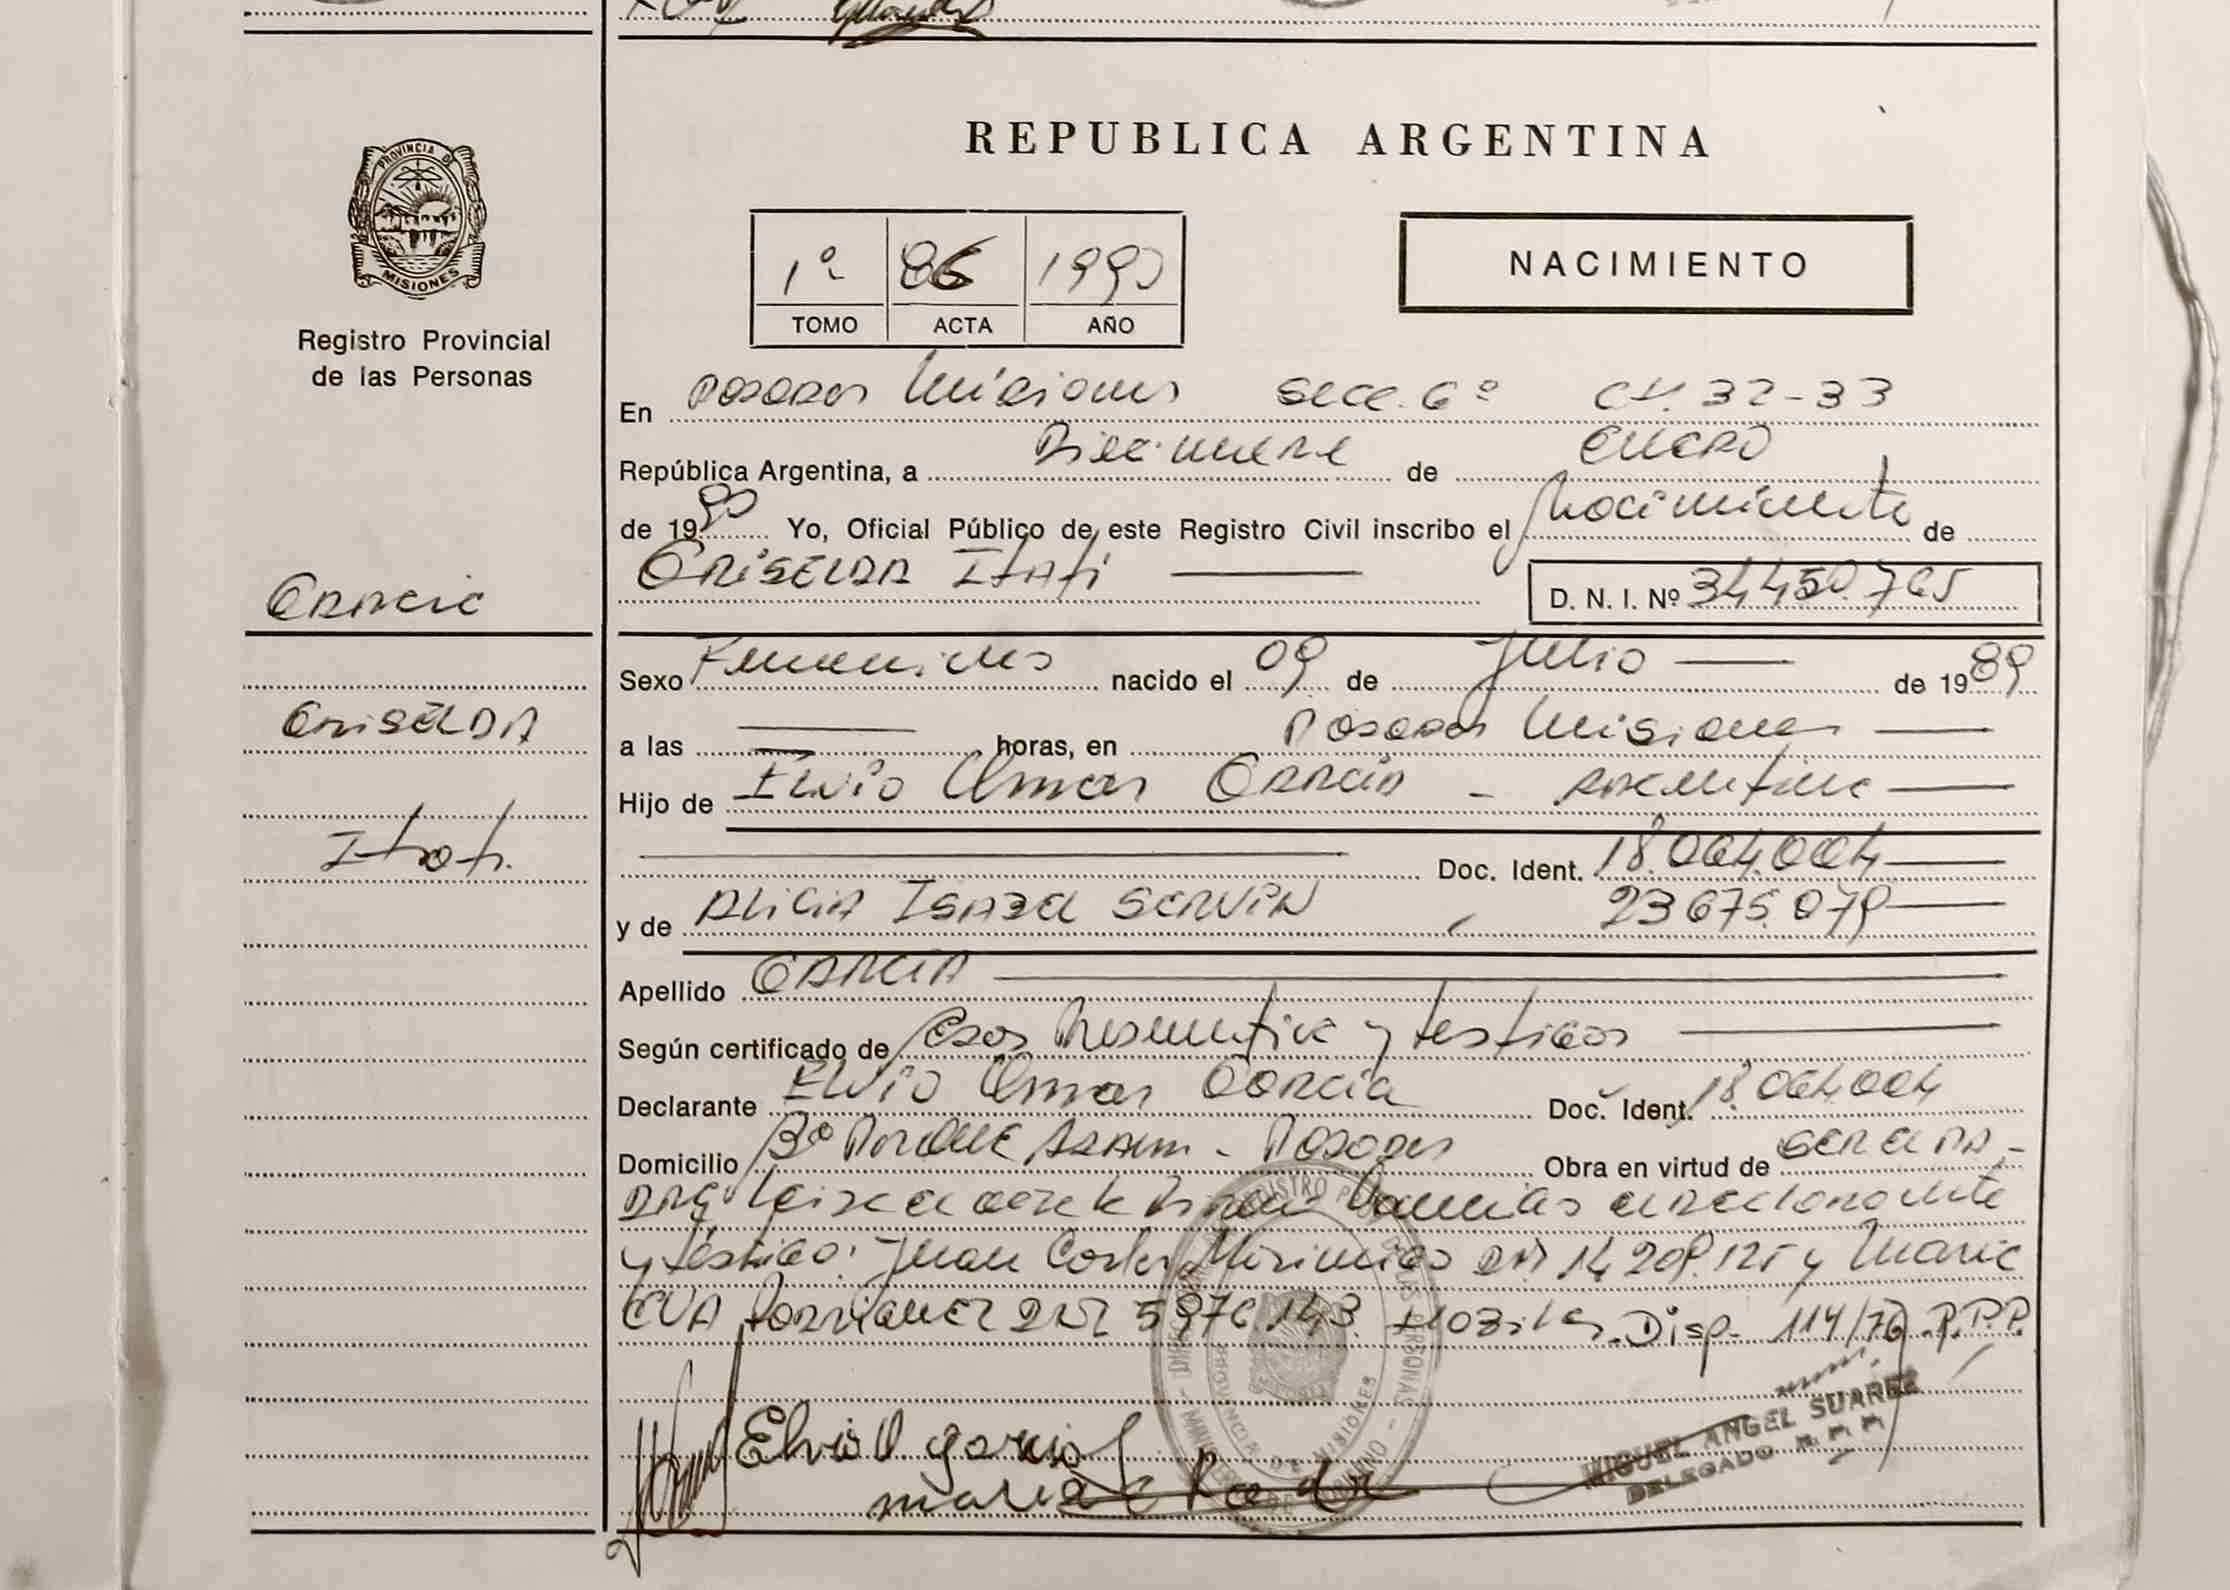 REPUBLICA ARGENTINA
PROVINCIA DE
MISIONES
Registro Provincial
de las Personas
NACIMIENTO
1º 86 1990
TOMO ACTA AÑO
En Posadas Misiones Secc. 6º 32-33
República Argentina, a Diecinueve de Enero
de 1990 Yo, Oficial Público de este Registro Civil inscribo el Nacimiento de
GRISELDA ITATI
D. N. I. Nº 34450.765
Garcia
Sexo Femenino nacido el 09 de Julio de 1989
GRISELDA
a las horas, en Posadas Misiones
Hijo de Elvio Omar Garcia - Argentina
Itati.
Doc. Ident. 18.064.004
y de Alicia Isabel Servin, 23675.079
Apellido GARCIA
Según certificado de y testigos
Declarante Elvio Omar Garcia Doc. Ident. 18.064.004
Domicilio Bº Posadas Obra en virtud de
declarante
y testigo: Juan Carlos DNI 14.209.125 y Maria
EVA Rodriguez DNI 5976.143. Disp. 114/76 R.P.P.
Elvio O garcia
maria E Rodr
MIGUEL ANGEL SUAREZ
DELEGADO R.P.P.
PROVINCIA DE MISIONES